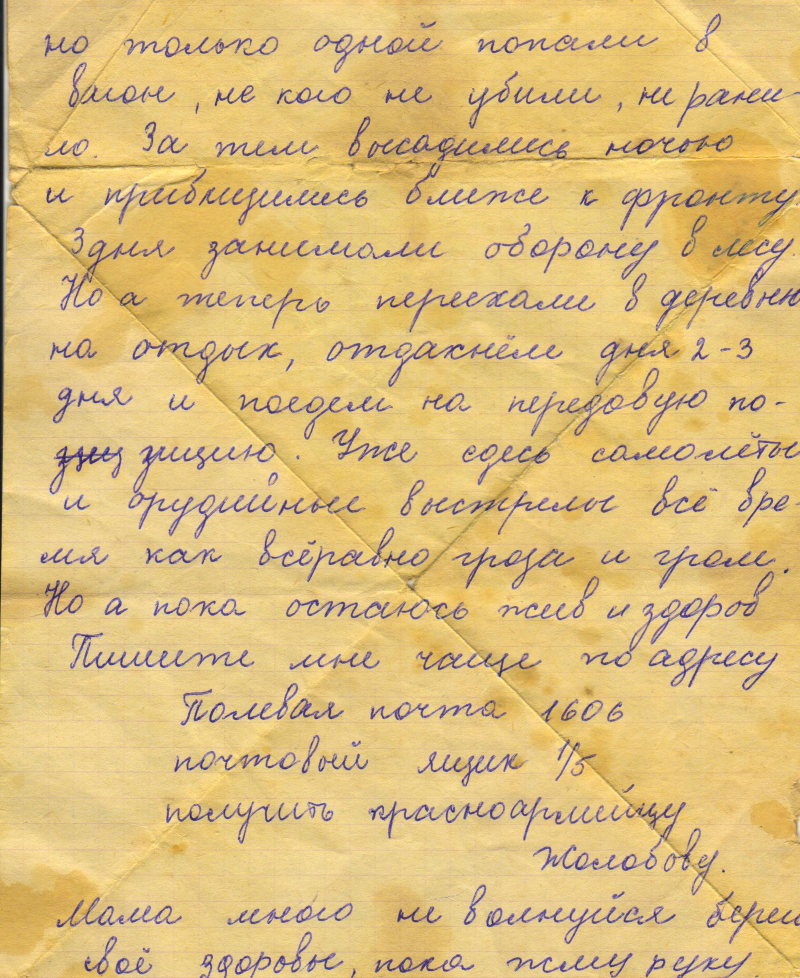 но только одной попали в
вагон, не кого не убили, ни рани-
ло. За тем высадились ночью
и приблизились ближе к фронту
3 дня занимали оборону в лесу.
Но а теперь переехали в деревню
на отдых, отдахнём дня 2-3
дня и поедем на передовую по-
зицию. Уже сдесь самолёты
и орудийные выстрелы всё вре-
мя как всёравно гроза и гром.
Но а пока остаюсь жив и здоров
Пишите мне чаще по адресу
Полевая почта 1606
почтовый ящик 1/5
получить красноармейцу
Жолобову.
Мама много не волнуйся береги
своё здоровье, пока жму руку